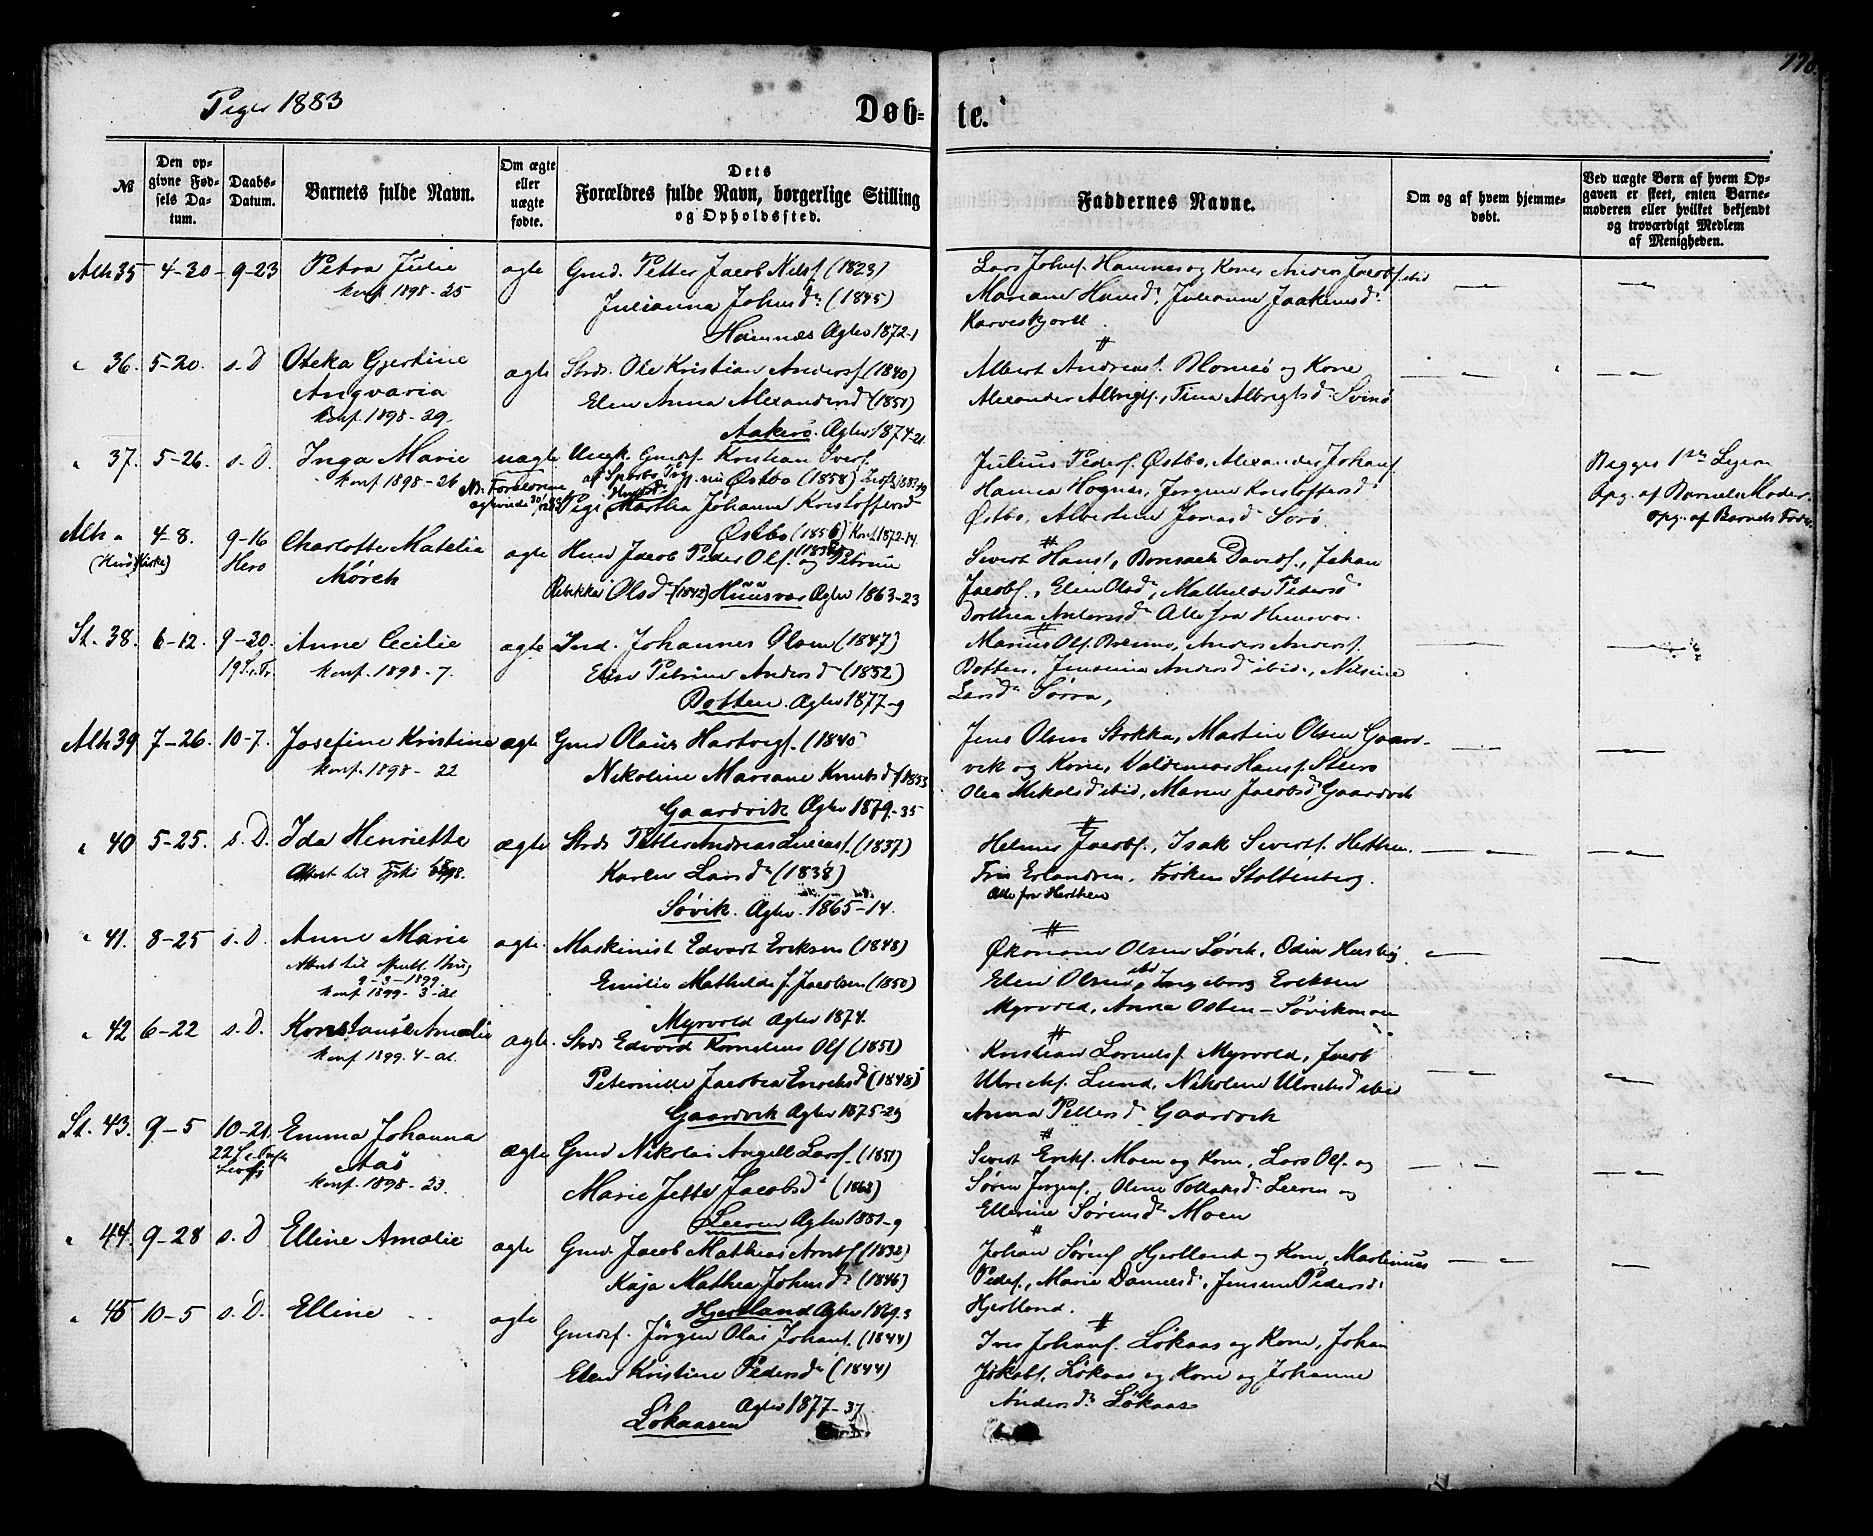 Piger 1883
Døb-
te.
118.
№
Den op-
givne Fød-
sels Da-
tum.
Daabs-
Datum.
Barnets fulde Navn.
Om ægte
eller
uægte
fødte.
Dets
Forældres fulde Navn, borgerlige Stilling
og Opholdssted.
Faddernes Navne.
Om og af hvem hjemme-
døbt.
Ved uægte Børn af hvem Op-
gaven er skeet, enten Barne-
moderen eller hvilket bekjendt
og troværdigt Medlem
af Menigheden.
Alh 35 4-20 9-23 Petra Julie ægte Gmd. Petter Jacob Nilsf. (1823)
Konf. 1898-25 Julianna Johnsd. (1845)
Hamnæs Ægtev 1872-1
Lars Johnf. Hamnes og Kone, Anders Jacobf. ibid
Mariane Hansd., Julianne Joakimsd.
Karveskjorll.
" 36. 5-20. s. D Oteka Gjertine ægte Strds. Ole Kristian Andersf. (1840)
Angvaria Elen Anna Alexandersd. (1851)
Konf. 1898-29. Aakerø. Ægtev 1874-21
Albert Andreasf. Blomsø og Kone
Alexander Albrigtsf., Trina Albrigtsd. Svinø
" 37. 5-26. s. D. Inga Marie uægte Ungk. Gmdsf. Kristian Iversf.
Konf 1898-26 Østbø (1858)
Pige Martha Johanna Kristoffersd.
Østbø (1856) Konf. 1872-14.
Julius Pedersf. Østbø, Alexander Johanf.
Hamna Hognæs, Jørgine Kristoffersd.
Østbø, Albertine Jonasd. Sørø.
Begges 1ste Leierm.
Opg. af Barnets Moder
opg. af Barnets Fader
Alh " 4-8. 9-16 Charlotte Matelie ægte Hmd Jacob Peder Olf. (1836) og Petrine
(Herø Kirke) Herø Mørch Rebekka Olsd. (1842) Huusvær Ægtev 1863-23
Sivert Hansf., Bonsach Davidf., Johan
Jacobf., Elen Olsd., Mathilde Pedersd.
Dorthea Antonsd. Alle fra Huusvær.
St. 38. 6-12. 9-30. Anne Cecilie ægte Ind. Johannes Olsen (1847)
19 S. e. Tr. Konf. 1898-7. Elen Petrine Andersd. (1852)
Botten. Ægtev 1877-9
Marius Olf. Breimo, Anders Andersf.
Botten, Jensine Andersd. ibid., Nilsine
Larsd. Sørra,
Alh 39. 7-26. 10-7. Josefine Kristine ægte Gmd Olaus Hartvigf. (1840
Konf. 1898-22 Nikoline Mariane Knutsd. (1853
Gaardvik Ægtev 1879-35
Jens Olsen Stokka, Martin Olsen Gaard-
vik og Kone, Valdemar Hansf. Steiro
Olea Mikalsd. ibid, Maren Jacobsd. Gaardvik
" 40 5-25. s. D. Ida Henriette ægte Strds Petter Andreas Liviusf. (1837)
Attest til 1898. Karen Larsd. (1838)
Søvik. Ægtev. 1865-14.
Helmer Jacobf., Isak Sivertf. Herthen.
Fru Erlandsen, Frøken Stoltenberg.
Alle fra Herthen
" 41. 8-25 s. D. Anne Marie ægte. Maskinist Edvart Eriksen (1848)
9-3-1899 Emilie Mathilde f. Jacobsen (1850)
Konf 1899-3-al Myrvold Ægtev 1874.
Økonom Olsen Søvik, Odin Husby
Elen Olsen ibid, Ingeborg Eriksen
Myrvold, Anna Osten-Søvikmoe
" 42 6-22 s. D. Konstanse Amalie ægte. Strds Edvard Kornelius Olf (1851)
Konf 1899. 4-al. Peternille Jacobea Enoksd. (1848)
Gaardvik Ægtev 1875-29
Kristian Lorndsf. Myrvold, Jacob
Ulrichf. Lund, Nikoline Ulrichsd. ibid
Anna Pettersd. Gaardvik
St. 43. 9-5 10-21. Emma Johanna ægte Gmd Nikolai Angell Larsf. (1851)
22 S. e. Aas Marie Jette Jacobsd. (1863)
Konf. 1898-23. Leeren Ægtev 1881-9
Sivert Erikf. Moen og Kone, Lars Olf. og
Søren Jørgenf., Oline Tollaksd. Leeren og
Ellerine Sørensd. Moen
" 44. 9-28 s. D Elline Amalie ægte Gmd. Jacob Mathias Arntf. (1832)
Kaja Mathea Johnsd. (1846)
Hjertland Ægtev 1869-3
Johan Sørenf Hjertland og Kone, Martinus
Pedef., Marie Danielsd., Jensine Pedersd.
Hjertland.
" 45 10-5 s. D. Elline ægte Gmdsf. Jørgen Olai Johanf. (1844)
Elen Kristine Pedersd. (1844)
Ægtev 1877-37
Løkaasen
Iver Johanf. Løkaas og Kone, Johan
Jakobf. Løkaas og Kone og Johanne
Andersd. Løkaas